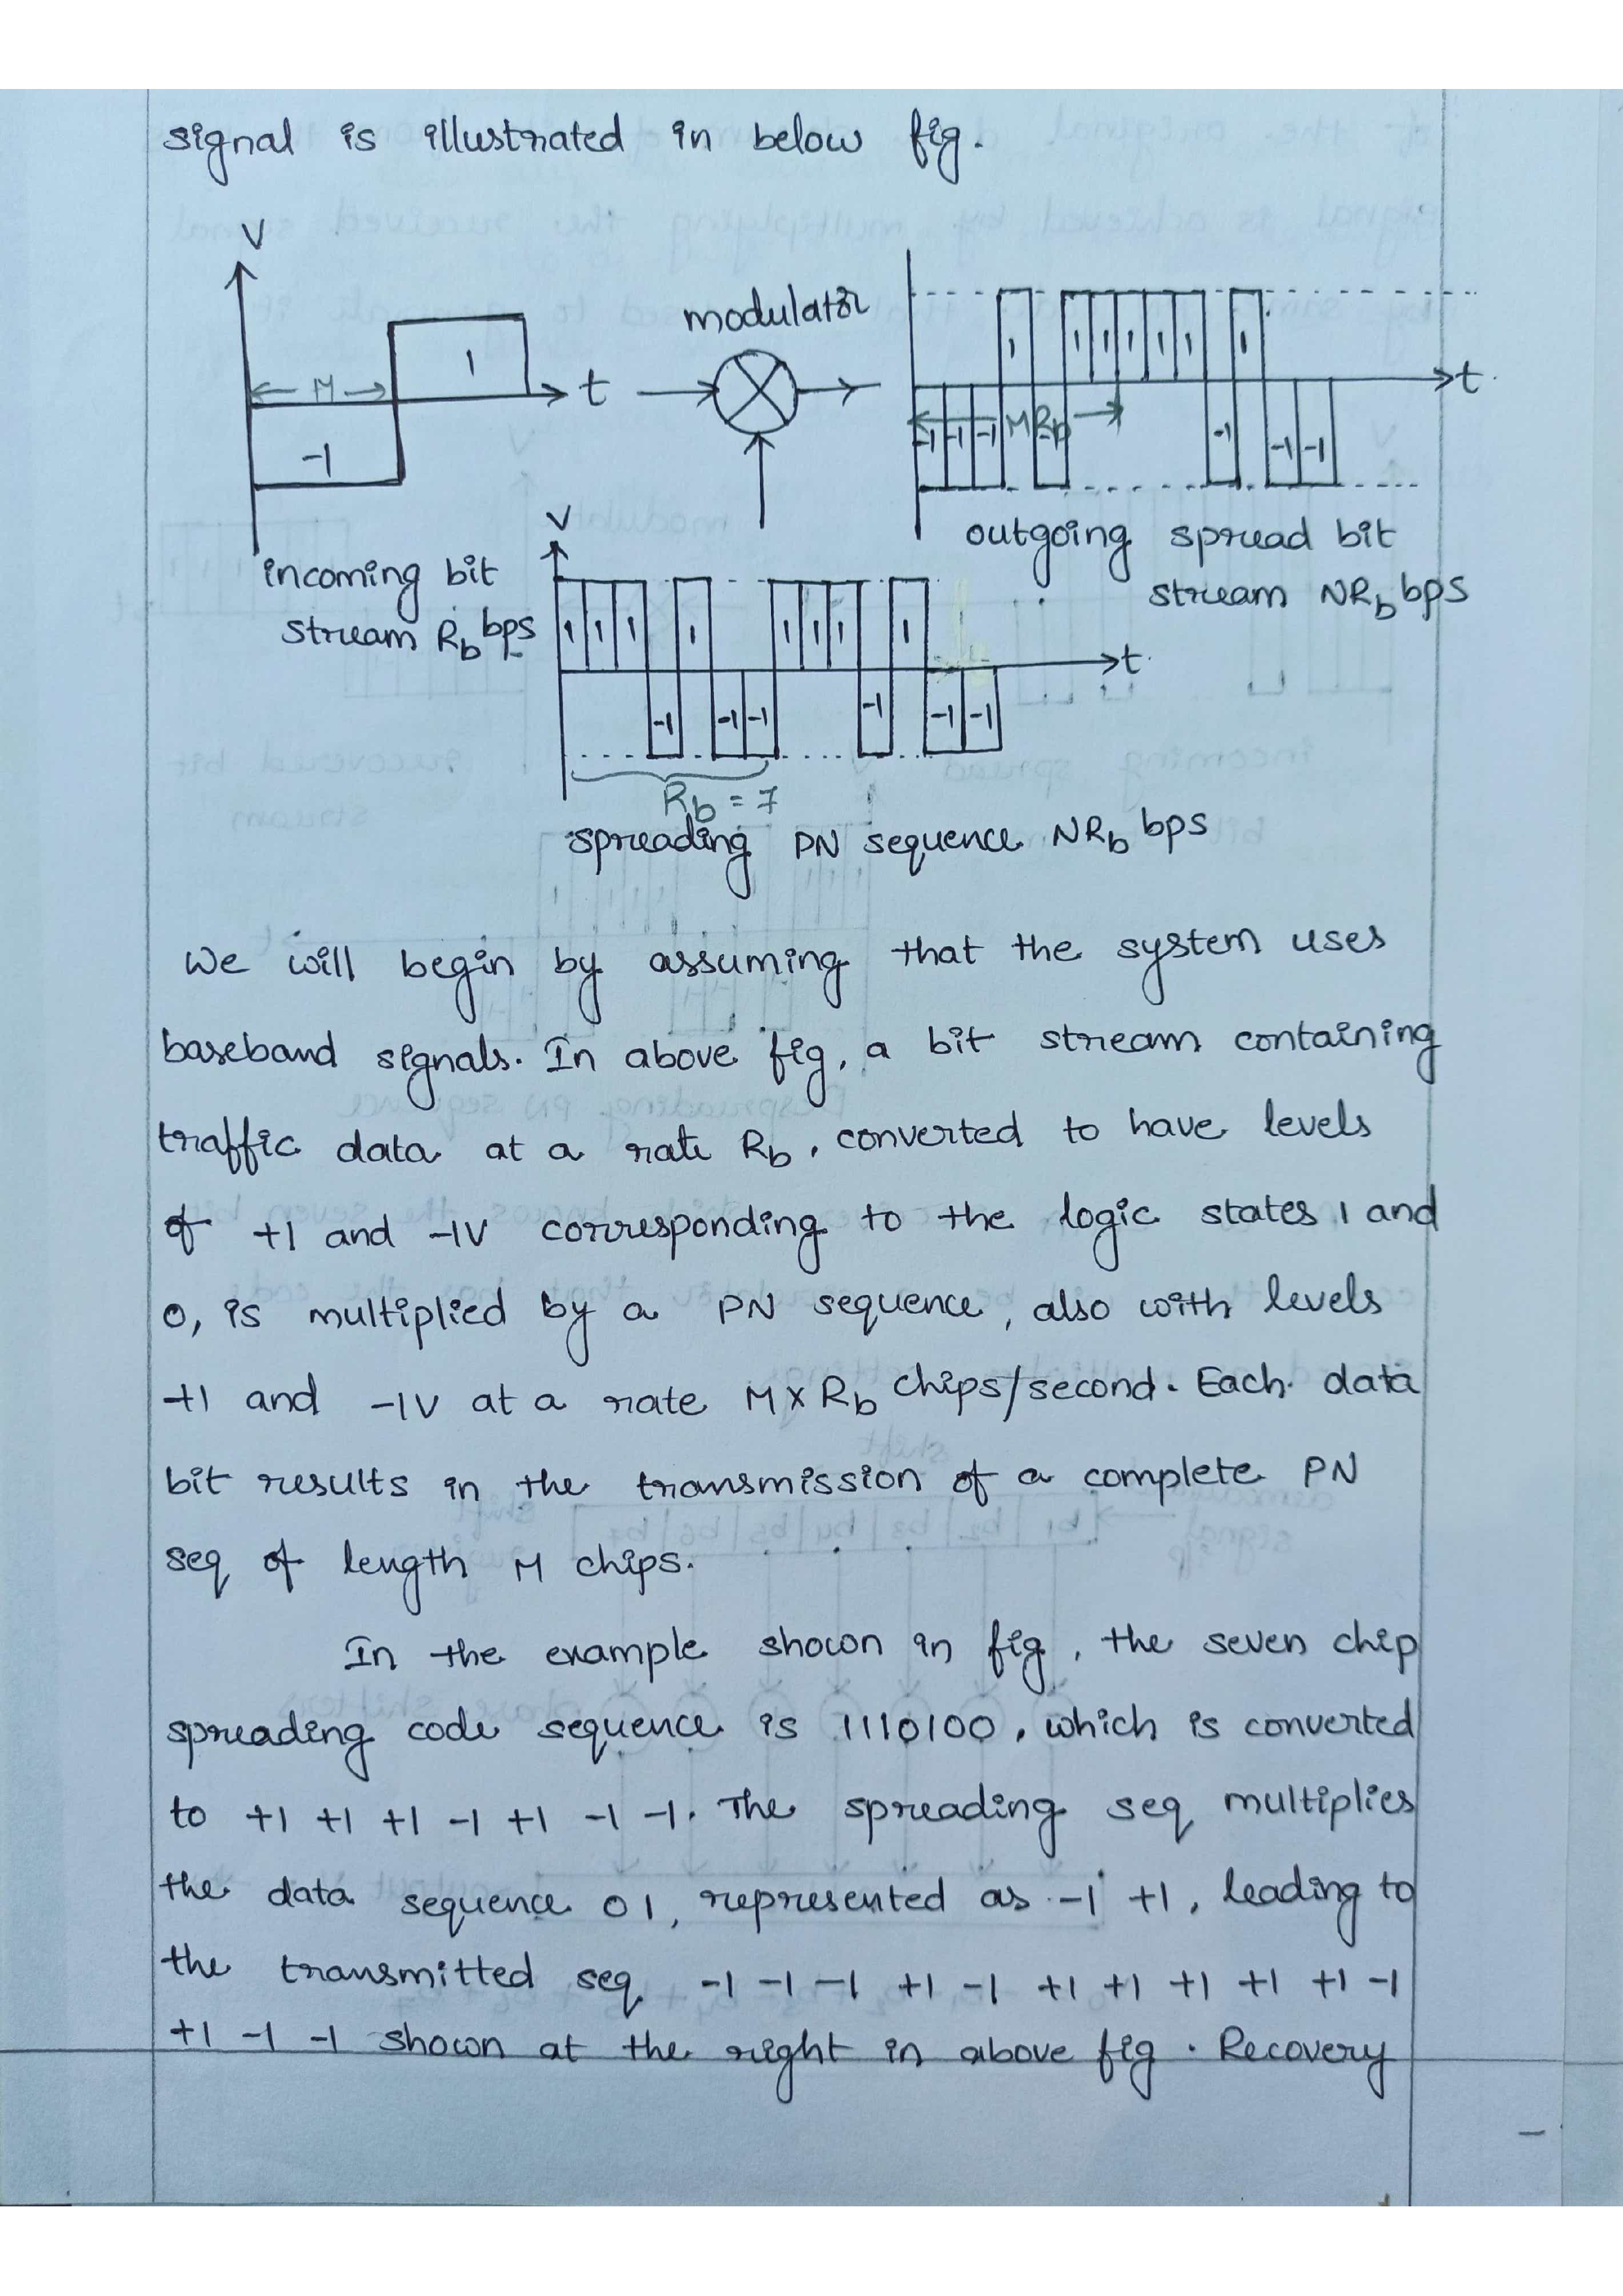 signal is illustrated in below fig.
V
modulator
1
← M →
t
-1
1 1 1 1 1 1 1
t
MRb
-1 -1 -1 -1 -1 -1 -1
incoming bit
stream Rb bps
outgoing spread bit
stream NRb bps
V
1 1 1 1 1 1 1 1
t
-1 -1 -1 -1 -1 -1
Rb = 7
spreading PN sequence NRb bps
We will begin by assuming that the system uses
baseband signals. In above fig, a bit stream containing
traffic data at a rate Rb, converted to have levels
of +1 and -1V corresponding to the logic states 1 and
0, is multiplied by a PN sequence, also with levels
+1 and -1V at a rate M x Rb chips/second. Each data
bit results in the transmission of a complete PN
seq of length M chips.
In the example shown in fig, the seven chip
spreading code sequence is 1110100, which is converted
to +1 +1 +1 -1 +1 -1 -1. The spreading seq multiplies
the data sequence 01, represented as -1 +1, leading to
the transmitted seq -1 -1 -1 +1 -1 +1 +1 +1 +1 +1 -1
+1 -1 -1 shown at the right in above fig. Recovery